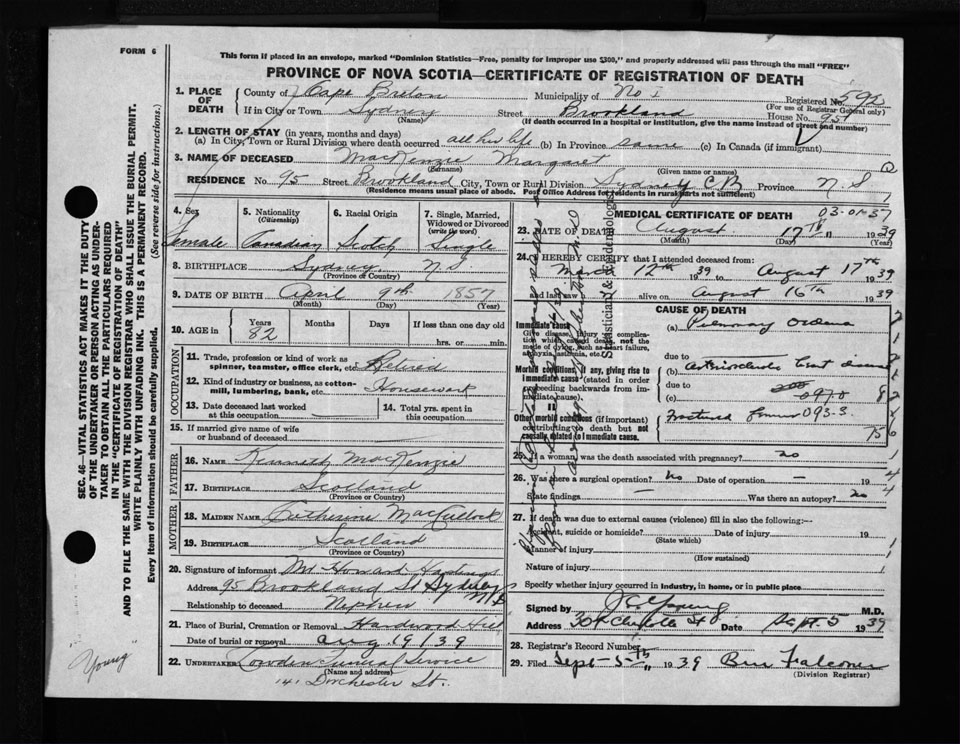 FORM 6
This form if placed in an envelope, marked "Dominion Statistics—Free, penalty for improper use $300," and properly addressed will pass through the mail "FREE"
PROVINCE OF NOVA SCOTIA—CERTIFICATE OF REGISTRATION OF DEATH
1. PLACE OF DEATH
County of Cape Breton Municipality of No 1 Registered No. 592
(For use of Registrar General only)
If in City or Town Sydney Street Brookland House No. 95
(Name) (If death occurred in a hospital or institution, give the name instead of street and number)
2. LENGTH OF STAY (in years, months and days)
(a) In City, Town or Rural Division where death occurred all his life (b) In Province same (c) In Canada (if immigrant)
3. NAME OF DECEASED MacKenzie Margaret
(Surname) (Given name or names)
RESIDENCE No. 95 Street Brookland City, Town or Rural Division Sydney C B Province N. S
(Residence means usual place of abode. Post Office Address for residents in rural parts not sufficient)
4. Sex Female
5. Nationality (Citizenship) Canadian
6. Racial Origin Scotch
7. Single, Married, Widowed or Divorced (write the word) Single
8. BIRTHPLACE Sydney N.S.
(Province or Country)
9. DATE OF BIRTH April 9th 1857
(Month) (Day) (Year)
10. AGE in Years 82 Months Days If less than one day old
hrs. or min.
OCCUPATION
11. Trade, profession or kind of work as spinner, teamster, office clerk, etc. Retired
12. Kind of industry or business, as cotton-mill, lumbering, bank, etc. Housework
13. Date deceased last worked at this occupation
14. Total yrs. spent in this occupation
15. If married give name of wife or husband of deceased
FATHER
16. NAME Kenneth MacKenzie
17. BIRTHPLACE Scotland
(Province or Country)
MOTHER
18. MAIDEN NAME Catherine MacCullock
19. BIRTHPLACE Scotland
(Province or Country)
20. Signature of informant Mr Howard Hastings
Address 95 Brookland St Sydney
Relationship to deceased Nephew
21. Place of Burial, Cremation or Removal Hardwood Hill
Date of burial or removal Aug 19/39
22. UNDERTAKER Funeral Service
(Name and address)
141 Dorchester St.
MEDICAL CERTIFICATE OF DEATH
03-01-37
23. DATE OF DEATH August 17th 1939
(Month) (Day) (Year)
24. I HEREBY CERTIFY that I attended deceased from:
March 12th 39 to August 17th 39
and last saw alive on August 16th 1939
CAUSE OF DEATH
Immediate cause
Give disease, injury or complication which caused death, not the mode of dying, such as heart failure, asphyxia, asthenia, etc.
(a)
due to
Morbid conditions, if any, giving rise to immediate cause (stated in order proceeding backwards from immediate cause).
(b)
due to
(c)
Other morbid conditions (if important) contributing to death but not causally related to immediate cause.
Fractured
Statistician & Epidemiologist
25. If a woman was the death associated with pregnancy? no
26. Was there a surgical operation? No Date of operation — 19
State findings — Was there an autopsy? no
27. If death was due to external causes (violence) fill in also the following:—
Accident, suicide or homicide? Date of injury 19
(State which)
Manner of injury
(How sustained)
Nature of injury
Specify whether injury occurred in industry, in home, or in public place
Signed by J C Young M.D.
Address Charlotte St Date Sept. 5 1939
28. Registrar's Record Number
29. Filed Sept-5-th 1939 Falconer
(Division Registrar)
SEC. 46—VITAL STATISTICS ACT MAKES IT THE DUTY
OF THE UNDERTAKER OR PERSON ACTING AS UNDER-
TAKER TO OBTAIN ALL THE PARTICULARS REQUIRED
IN THE "CERTIFICATE OF REGISTRATION OF DEATH"
AND TO FILE THE SAME WITH THE DIVISION REGISTRAR WHO SHALL ISSUE THE BURIAL PERMIT.
WRITE PLAINLY WITH UNFADING INK. THIS IS A PERMANENT RECORD.
Every item of information should be carefully supplied. (See reverse side for instructions.)
Young